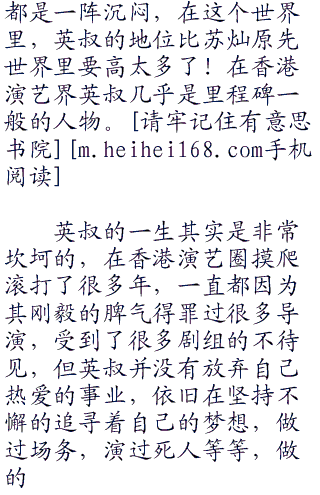 都是一阵沉闷，在这个世界
里，英叔的地位比苏灿原先
世界里要高太多了！在香港
演艺界英叔几乎是里程碑一
般的人物。[请牢记住有意思
书院][m.heihei168.com手机
阅读]
英叔的一生其实是非常
坎坷的，在香港演艺圈摸爬
滚打了很多年，一直都因为
其刚毅的脾气得罪过很多导
演，受到了很多剧组的不待
见，但英叔并没有放弃自己
热爱的事业，依旧在坚持不
懈的追寻着自己的梦想，做
过场务，演过死人等等，做
的